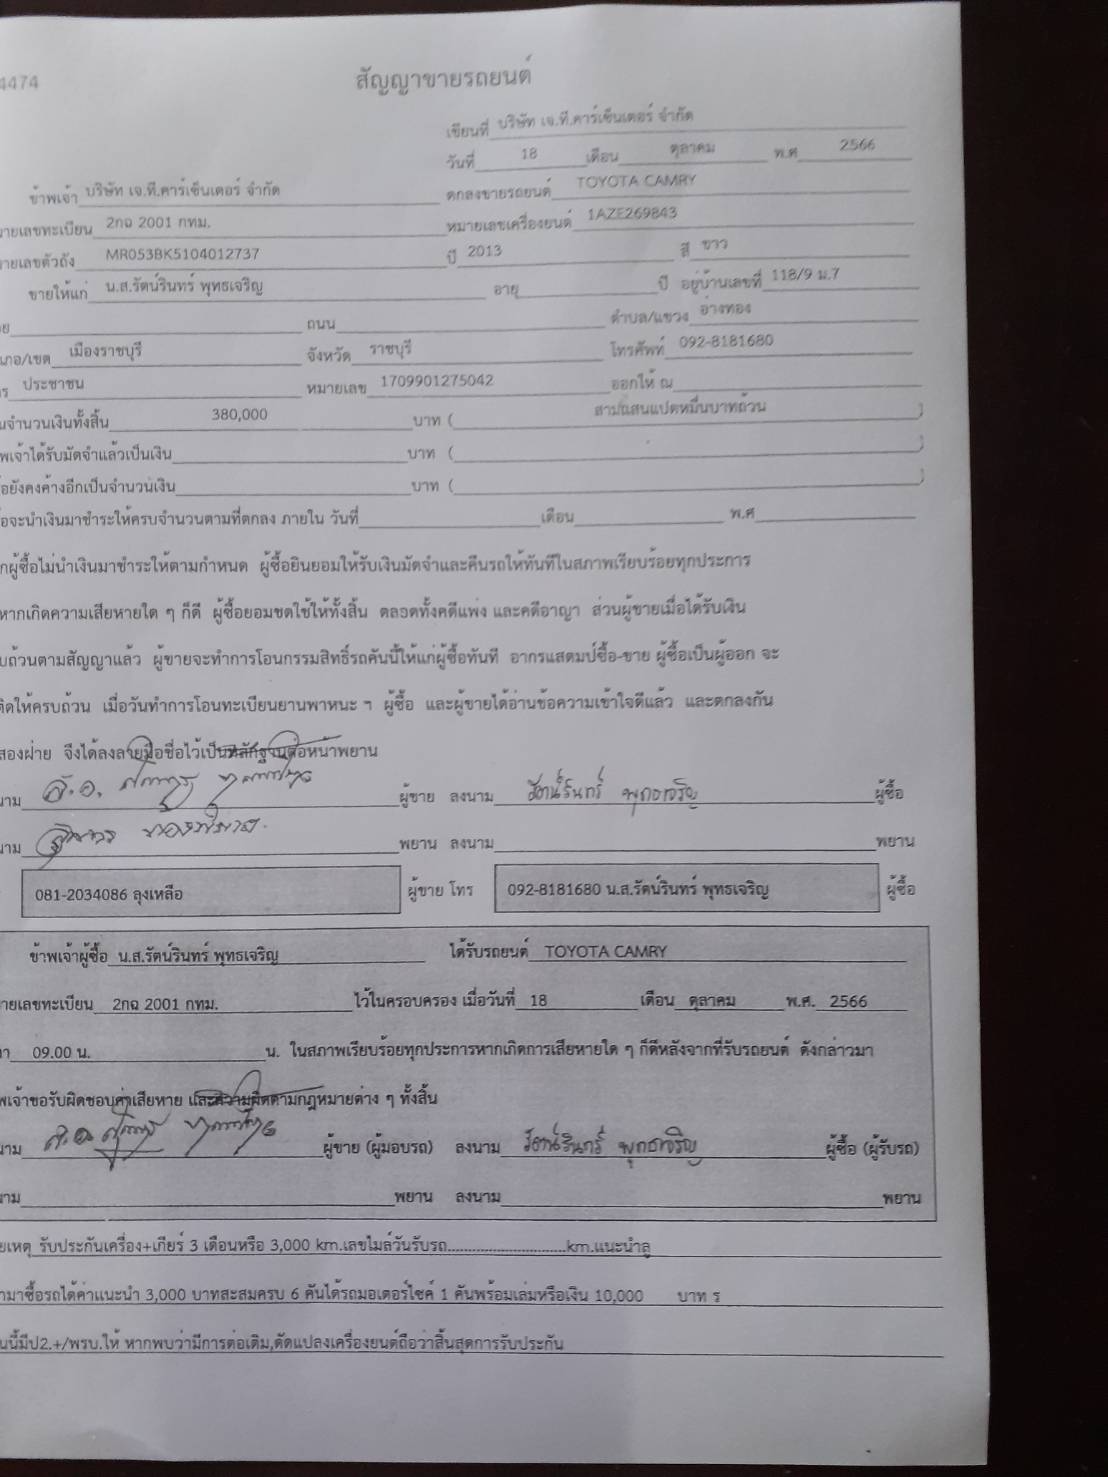 4474
สัญญาขายรถยนต์
เขียนที่ บริษัท เจ.ที.คาร์เซ็นเตอร์ จำกัด
วันที่ 18 เดือน ตุลาคม พ.ศ 2566
ข้าพเจ้า บริษัท เจ.ที.คาร์เซ็นเตอร์ จำกัด ตกลงขายรถยนต์ TOYOTA CAMRY
ายเลขทะเบียน 2กฉ 2001 กทม. หมายเลขเครื่องยนต์ 1AZE269843
ายเลขตัวถัง MR053BK5104012737 ปี 2013 สี ขาว
ขายให้แก่ น.ส.รัตน์รินทร์ พุทธเจริญ อายุ ปี อยู่บ้านเลขที่ 118/9 ม.7
ย ถนน ตำบล/แขวง อ่างทอง
เภอ/เขต เมืองราชบุรี จังหวัด ราชบุรี โทรศัพท์ 092-8181680
ร ประชาชน หมายเลข 1709901275042 ออกให้ ณ
นจำนวนเงินทั้งสิ้น 380,000 บาท ( สามแสนแปดหมื่นบาทถ้วน )
พเจ้าได้รับมัดจำแล้วเป็นเงิน บาท ( )
อยังคงค้างอีกเป็นจำนวนเงิน บาท ( )
อจะนำเงินมาชำระให้ครบจำนวนตามที่ตกลง ภายใน วันที่ เดือน พ.ศ
กผู้ซื้อไม่นำเงินมาชำระให้ตามกำหนด ผู้ซื้อยินยอมให้รับเงินมัดจำและคืนรถให้ทันทีในสภาพเรียบร้อยทุกประการ
หากเกิดความเสียหายใด ๆ ก็ดี ผู้ซื้อยอมชดใช้ให้ทั้งสิ้น ตลอดทั้งคดีแพ่ง และคดีอาญา ส่วนผู้ขายเมื่อได้รับเงิน
บถ้วนตามสัญญาแล้ว ผู้ขายจะทำการโอนกรรมสิทธิ์รถคันนี้ให้แก่ผู้ซื้อทันที อากรแสตมป์ซื้อ-ขาย ผู้ซื้อเป็นผู้ออก จะ
ติดให้ครบถ้วน เมื่อวันทำการโอนทะเบียนยานพาหนะ ฯ ผู้ซื้อ และผู้ขายได้อ่านข้อความเข้าใจดีแล้ว และตกลงกัน
สองฝ่าย จึงได้ลงลายมือชื่อไว้เป็นหลักฐานต่อหน้าพยาน
นาม ผู้ขาย ลงนาม รัตน์รินทร์ พุทธเจริญ ผู้ซื้อ
นาม พยาน ลงนาม พยาน
081-2034086 ลุงเหลือ ผู้ขาย โทร 092-8181680 น.ส.รัตน์รินทร์ พุทธเจริญ ผู้ซื้อ
ข้าพเจ้าผู้ซื้อ น.ส.รัตน์รินทร์ พุทธเจริญ ได้รับรถยนต์ TOYOTA CAMRY
ายเลขทะเบียน 2กฉ 2001 กทม. ไว้ในครอบครอง เมื่อวันที่ 18 เดือน ตุลาคม พ.ศ. 2566
า 09.00 น. น. ในสภาพเรียบร้อยทุกประการหากเกิดการเสียหายใด ๆ ก็ดีหลังจากที่รับรถยนต์ ดังกล่าวมา
พเจ้าขอรับผิดชอบค่าเสียหาย และความผิดตามกฎหมายต่าง ๆ ทั้งสิ้น
นาม ผู้ขาย (ผู้มอบรถ) ลงนาม รัตน์รินทร์ พุทธเจริญ ผู้ซื้อ (ผู้รับรถ)
นาม พยาน ลงนาม พยาน
ยเหตุ รับประกันเครื่อง+เกียร์ 3 เดือนหรือ 3,000 km.เลขไมล์วันรับรถ..............................km.แนะนำลู
ามาซื้อรถได้ค่าแนะนำ 3,000 บาทสะสมครบ 6 คันได้รถมอเตอร์ไซค์ 1 คันพร้อมเล่มหรือเงิน 10,000 บาท ร
นนี้มีป2.+/พรบ.ให้ หากพบว่ามีการต่อเติม,ดัดแปลงเครื่องยนต์ถือว่าสิ้นสุดการรับประกัน